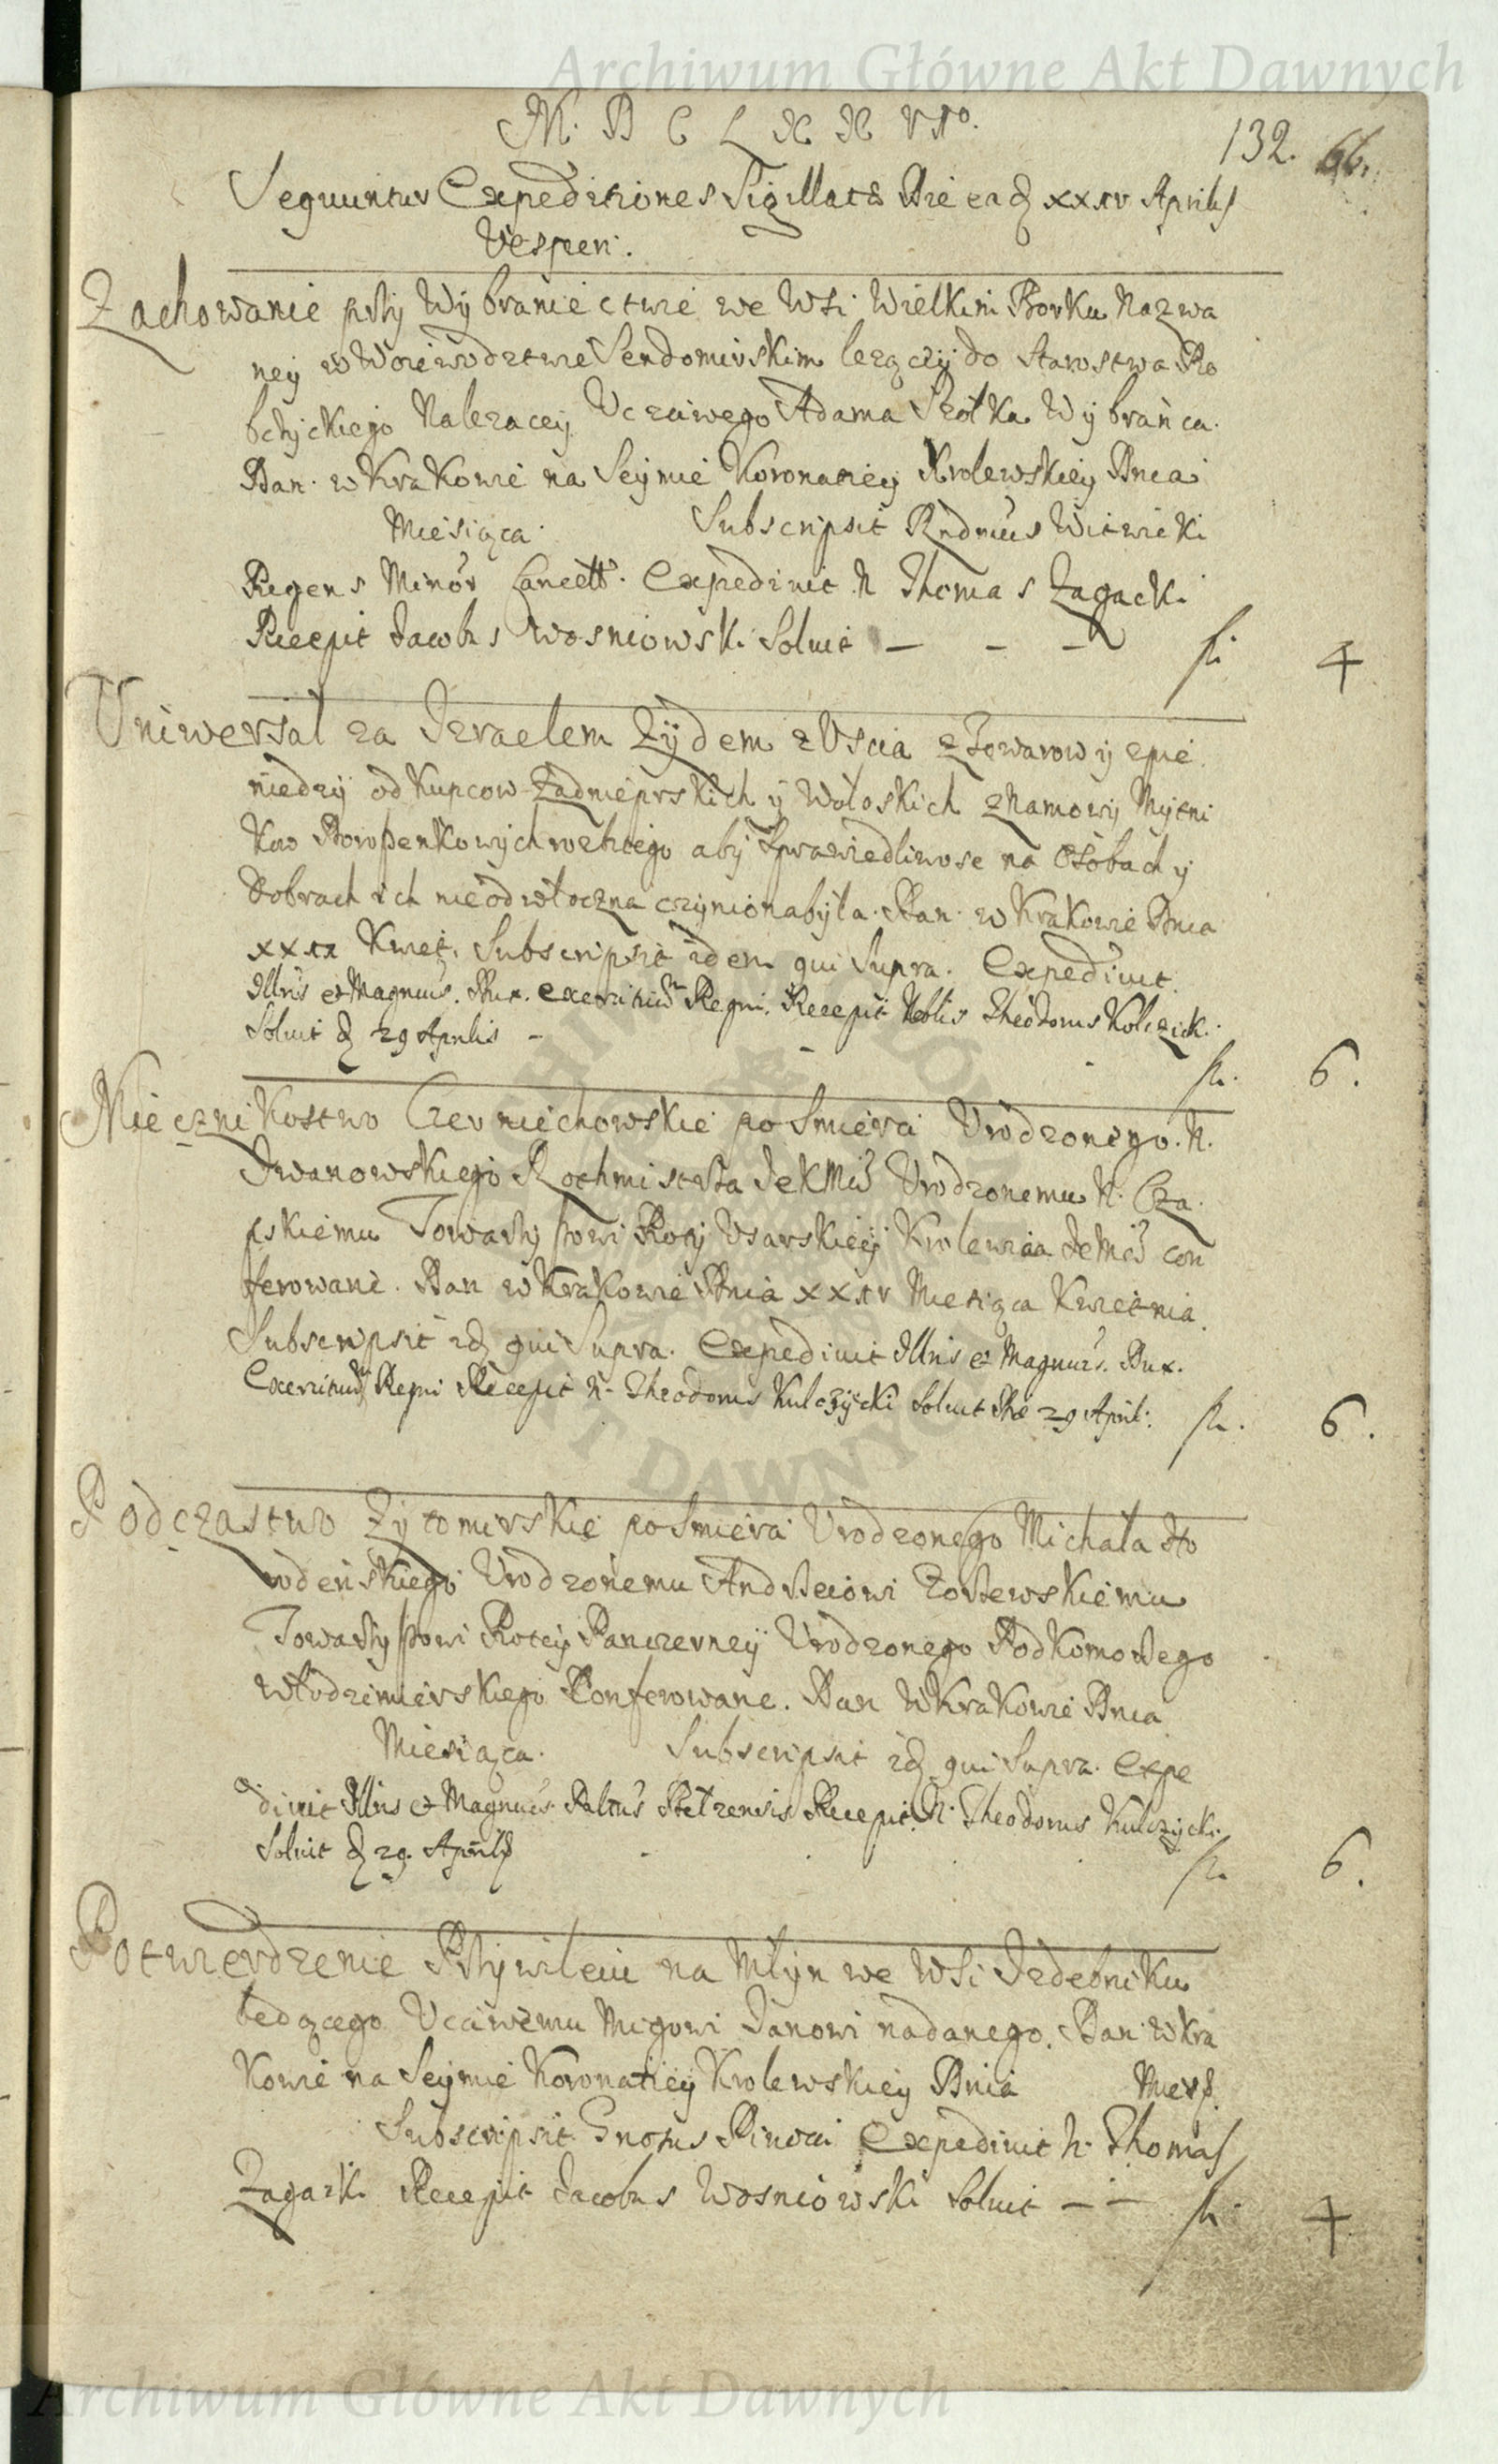 Archiwum Główne Akt Dawnych
M. D C L X X VIº.
132. 66.
Sequuntur Expeditiones Sigillatæ Die eadem xxiv Aprilis
Vesperi.
Zachowanie przy Wybraniectwie we Wsi Wielkim Borku Nazwa
ney w Woiewodztwie Sendomirskim lezączy do Starostwa Ro
bczyckiego Nalezacey Uczciwego Adama Wybranca.
Dan. w Krakowie na Seymie Koronatiey Krolewskiey Dnia
Miesiąca. Subscripsit Rndmus Witwicki
Regens Minor Cancell. Expedivit N Thomas Zagacki
Recepit Jacobus Wosniowski Solvit — — — fl. 4
Uniwersał za Izraelem Zydem z Uscia z Towarow y z pie
niedzy od Kupcow Zadnieprskich y Wołoskich z Namowy Mytni
kow aby Sprawiedliwosc na Osobach y
Dobrach ich nieodwłoczna czyniona była. Dan. w Krakowie Dnia
Kwiet. Subscripsit idem qui Supra. Expedivit.
Illris et Magnus. Dux. exercituum Regni. Recepit Nobilis Theodorus Kolczick.
Solvit d 29 Aprilis — fl. 6.
Miecznikostwo Czerniechowskie po Smierci Urodzonego. N.
Iwanowskiego Rothmistrza JeKMci Urodzonemu N. Cza
pskiemu Towarzyszowi Roty Usarskiey Krolewica JeMci con
ferowane. Dan w Krakowie Dnia xxiv Miesiąca Kwietnia.
Subscripsit id qui Supra. Expedivit Illris et Magnus. Dux.
Exercituum Regni Recepit N. Theodorus Kulczycki Solvit Die 29 April. fl. 6.
Podczastwo Zytomirskie po Smierci Urodzonego Michała Ho
rodenskiego Urodzonemu Andrzeiowi
Towarzyszowi Rotey Pancerney Urodzonego Podkomorzego
Włodzimierskiego Konferowane. Dan w Krakowie Dnia
Miesiąca. Subscripsit id qui Supra. Expe
divit Illris et Magnus. Palnus Belzensis Recepit N. Theodorus Kulczycki.
Solvit d 29. Aprilis fl. 6.
Potwierdzenie Przywileiu na Młyn we Wsi Izdebniku
bedącego Uczciwemu Migowi Janowi nadanego. Dan. w Kra
kowie na Seymie Koronatiey Krolewskiey Dnia Mies.
Subscripsit Gnosus Expedivit N. Thomas
Zagacki Recepit Jacobus Wosniowski Solvit — — fl. 4
Archiwum Główne Akt Dawnych